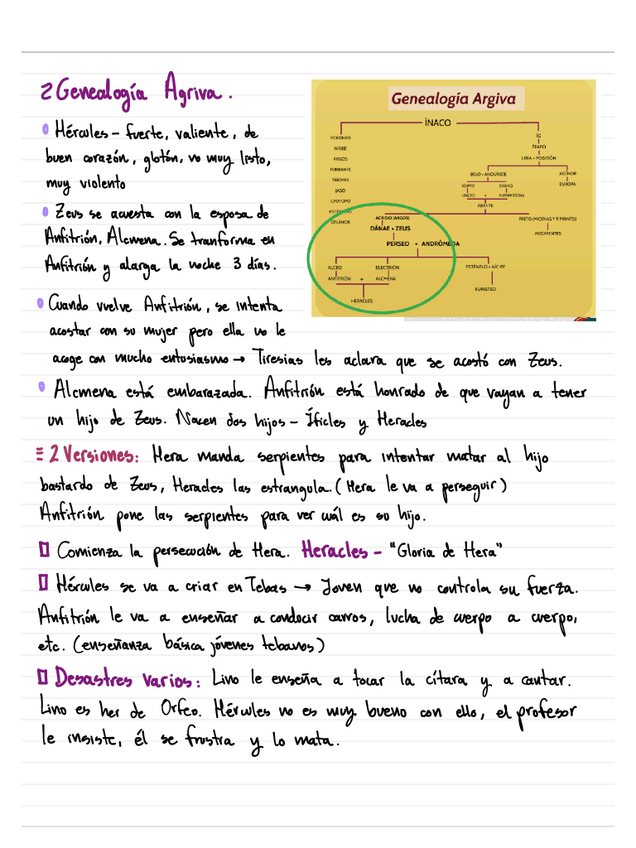 2 Genealogía Agriva.
Hércules - fuerte, valiente, de
buen corazón, glotón, no muy listo,
muy violento
Zeus se acuesta con la esposa de
Anfitrión, Alcmena. Se tranforma en
Anfitrión y alarga la noche 3 días.
Cuando vuelve Anfitrión, se intenta
acostar con su mujer pero ella no le
acoge con mucho entusiasmo → Tiresias les aclara que se acostó con Zeus.
Genealogía Argiva
ÍNACO
FORONEO
ÍO
NIOBE
ÉPAFO
ARGOS
LIBIA + POSEIDÓN
FORBANTE
BELO + ANQUÍNOE
AGENOR
TRÍOPAS
EGIPTO
DÁNAO
EUROPA
IASO
LINCEO + HIPERMESTRA
CROTOPO
ABANTE
ESTÉNELAS
ACRISIO (ARGOS)
PRETO (MICENAS Y TIRINTO)
GELANOR
DÁNAE + ZEUS
MEGAPENTES
PERSEO + ANDRÓMEDA
ALCEO
ELECTRIÓN
ESTENELO + NICIPE
ANFITRIÓN + ALCMENA
EURISTEO
HERACLES
Alcmena está embarazada. Anfitrión está honrado de que vayan a tener
un hijo de Zeus. Nacen dos hijos - Íficles y Heracles
2 Versiones: Hera manda serpientes para intentar matar al hijo
bastardo de Zeus, Heracles las estrangula. (Hera le va a perseguir)
Anfitrión pone las serpientes para ver cuál es su hijo.
Comienza la persecución de Hera. Heracles - "Gloria de Hera"
Hércules se va a criar en Tebas → Joven que no controla su fuerza.
Anfitrión le va a enseñar a conducir carros, lucha de cuerpo a cuerpo,
etc. (enseñanza básica jóvenes tebanos)
Desastres varios: Lino le enseña a tocar la cítara y a cantar.
Lino es her de Orfeo. Hércules no es muy bueno con ello, el profesor
le insiste, él se frustra y lo mata.